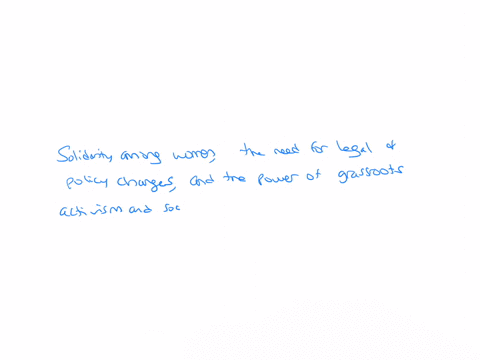 Solidarity among women, the need for legal &
policy changes, and the power of grassroots
activism and soc